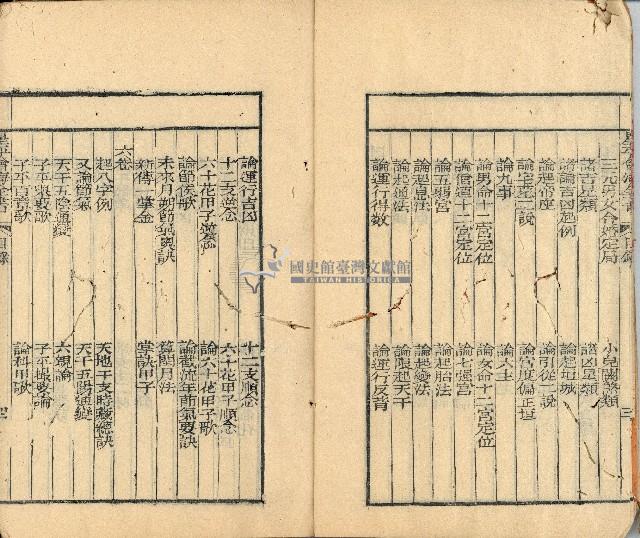 三元男女合婚定局
小兒關煞類
諸吉星類
諸凶星類
諸論吉凶起例
論起垣城
論起帝座
論引從二說
論宅墓二說
論宮偏正垣
論九事
論人主
論男命十二宮定位
論女命十二宮定位
論僧道十二宮定位
論七強宮
論五弱宮
論起胎法
論起息法
論起變法
論起通法
論限起天干
論運行得數
論運行反背
論運行吉凶
十二支順念
十二支逆念
六十花甲子順念
六十花甲子逆念
論六十花甲子歌
論節候歌
論截流年節氣要訣
未來月朔節氣奧訣
算閏月法
新傳一掌金
掌訣甲子
六卷
起八字例
天地干支時臟總訣
又論節氣
天干五陽通變
天干五陰通變
六親論
子平舉要歌
子平撮要論
子平百章歌
論科甲歌
國史館臺灣文獻館
TAIWAN HISTORICA